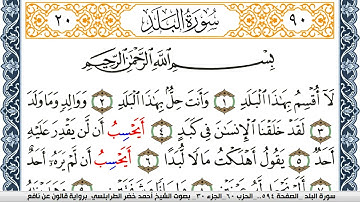 ٩٠ سُورَةُ البَلَدِ ٢٠
بِسْمِ اللَّهِ الرَّحْمَٰنِ الرَّحِيمِ
لَا أُقْسِمُ بِهَٰذَا الْبَلَدِ ١ وَأَنتَ حِلٌّ بِهَٰذَا الْبَلَدِ ٢ وَوَالِدٍ وَمَا وَلَدَ
٣ لَقَدْ خَلَقْنَا الْإِنسَٰنَ فِي كَبَدٍ ٤ أَيَحْسِبُ أَن لَّن يَقْدِرَ عَلَيْهِ
أَحَدٌ ٥ يَقُولُ أَهْلَكْتُ مَالًا لُّبَدًا ٦ أَيَحْسِبُ أَن لَّمْ يَرَهُ أَحَدٌ
سورة البلد الصفحة ٥٩٤.. الحزب ٦٠ الجزء ٣٠ . بصوت الشيخ أحمد خضر الطرابلسي. برواية قالون عن نافع